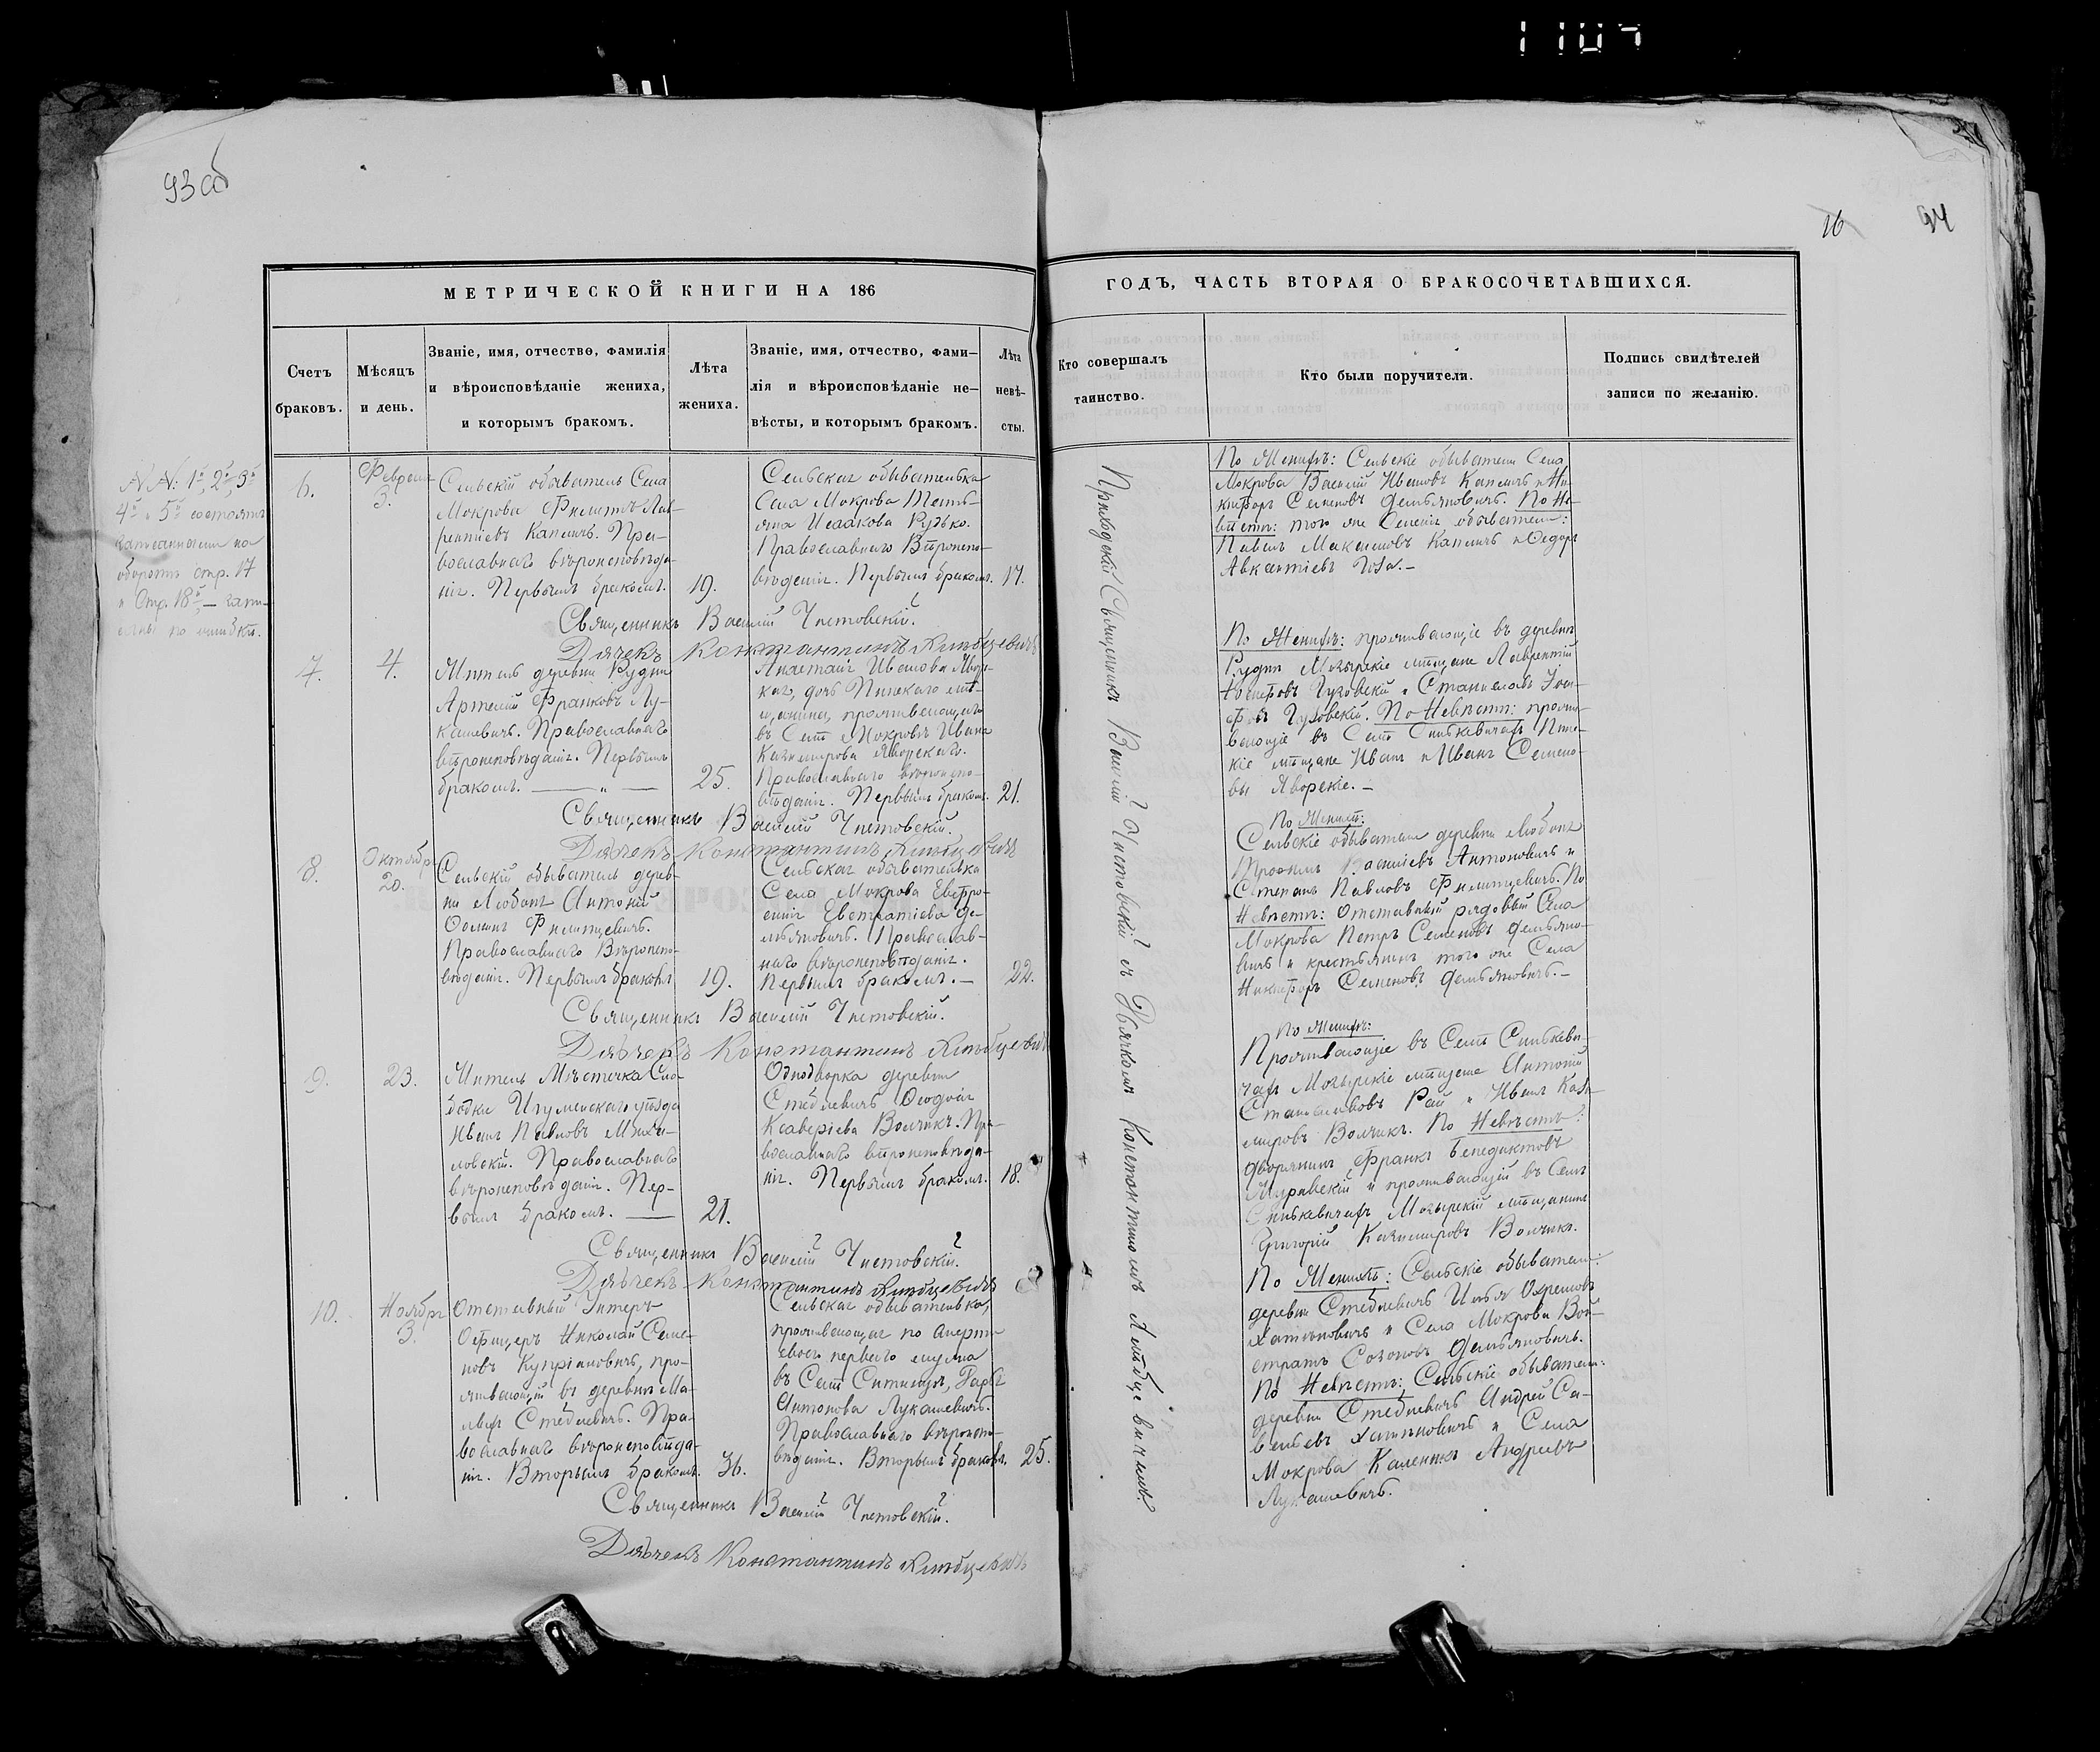 93 об
16
94
МЕТРИЧЕСКОЙ КНИГИ НА 186
ГОДЪ, ЧАСТЬ ВТОРАЯ О БРАКОСОЧЕТАВШИХСЯ.
Счетъ
браковъ.
Мѣсяцъ
и день.
Званіе, имя, отчество, фамилія
и вѣроисповѣданіе жениха,
и которымъ бракомъ.
Лѣта
жениха.
Званіе, имя, отчество, фами-
лія и вѣроисповѣданіе не-
вѣсты, и которымъ бракомъ.
Лѣта
невѣ-
сты.
Кто совершалъ
таинство.
Кто были поручители.
Подпись свидѣтелей
записи по желанію.
NN: 1й, 2й, 3й
4й и 5й состоятъ
на
оборотѣ стр. 17
и Стр. 18й –
по ошибки.
6.
Февраля
3.
Сельскій обыватель Села
Мокрова Филиппъ Лав-
рентіевъ Капличъ. Пра-
вославнаго вѣроисповѣда-
нія. Первымъ бракомъ.
19.
Сельская обывателька
Села Мокрова Тать-
яна Исаакова Рудько.
Православнаго Вѣроиспо-
вѣданія. Первымъ бракомъ.
17.
По Женихѣ: Сельскіе обыватели Села
Мокрова Василій Ивановъ Капличъ и Ни-
кифоръ Семеновъ Демьяновичъ. По Не-
вѣстѣ: того же Селенія обыватели:
Павелъ Максимовъ Капличъ и Ѳедоръ
Авксентіевъ –
Священникъ Василій Чистовскій.
Дьячекъ Константинъ Хлѣбцевичъ
7.
4.
Житель деревни Рудни
Артемій Франковъ Лу-
кашевичъ. Православнаго
вѣроисповѣданія. Первымъ
бракомъ. — „ —
25.
Анастасія Иванова Явор-
ская, дочь Пинскаго мѣ-
щанина, проживающаго
въ Селѣ Мокровѣ Ивана
Казимирова Яворскаго.
Православнаго вѣроиспо-
вѣданія. Первымъ бракомъ.
21.
По Женихѣ: проживающіе въ деревнѣ
Руднѣ Мозырскіе мѣщане Лаврентій
Іосифовъ Гузовскій и Станиславъ Іоси-
фовъ Гузовскій. По Невѣстѣ: прожи-
вающіе въ Селѣ Синкевичахъ Пинс-
кіе мѣщане Иванъ и Иванъ Семено-
вы Яворскіе. –
Священникъ Василій Чистовскій.
Дьячекъ Константинъ Хлѣбцевичъ
8.
Октября
20.
Сельскій обыватель дерев-
ни Любань Антоній
Ѳоминъ Филипцевичъ.
Православнаго Вѣроиспо-
вѣданія. Первымъ бракомъ
19.
Сельская обывателька
Села Мокрова Евфро-
синія Евстратіева Де-
мьяновичъ. Православ-
наго вѣроисповѣданія.
Первымъ бракомъ. –
22.
По Женихѣ:
Сельскіе обыватели деревни Любань
Трофимъ Васильевъ Антоновичъ и
Степанъ Павловъ Филипцевичъ. По
Невѣстѣ: Отставный рядовый Села
Мокрова Петръ Семеновъ Демьяно-
вичъ и крестьянинъ того же Села
Никифоръ Семеновъ Демьяновичъ. –
Священникъ Василій Чистовскій.
Дьячекъ Константинъ Хлѣбцевичъ
9.
23.
Житель Мѣстечка Сло-
бодки Игуменскаго уѣзда
Иванъ Павловъ Миха-
ловскій. Православнаго
вѣроисповѣданія. Пер-
вымъ бракомъ. —
21.
Однодворка деревни
Стеблевичъ Ѳеодосія
Ксаверіева Волчикъ. Пра-
вославнаго вѣроисповѣда-
нія. Первымъ бракомъ.
18.
По Женихѣ:
Проживающіе въ Селѣ Синкеви-
чахъ Мозырскіе мѣщане Антоній
Станиславовъ Рай и Иванъ Кази-
мировъ Волчикъ. По Невѣстѣ:
дворянинъ Франкъ Бенедиктовъ
Журавскій и проживающій въ Селѣ
Синкевичахъ Мозырскій мѣщанинъ
Григорій Казимировъ Волчикъ.
Священникъ Василій Чистовскій.
Дьячекъ Константинъ Хлѣбцевичъ
10.
Ноября
3.
Отставный Унтеръ
Офицеръ Николай Семе-
новъ Купріановичъ, про-
живающій въ деревнѣ Ма-
лыхъ Стеблевичъ. Пра-
вославнаго вѣроисповѣда-
нія. Вторымъ бракомъ.
36.
Сельская обывателька,
проживающая по смерти
своего перваго мужа
въ Селѣ
Антонова Лукашевичъ.
Православнаго вѣроиспо-
вѣданія. Вторымъ бракомъ.
25.
По Женихѣ: Сельскіе обыватели:
деревни Стеблевичъ Илья
и Села Мокрова
Созоновъ Демьяновичъ.
По Невѣстѣ: Сельскіе обыватели:
деревни Стеблевичъ Андрей Са-
вельевъ и Села
Мокрова Андреевъ
Лукашевичъ.
Священникъ Василій Чистовскій.
Дьячекъ Константинъ Хлѣбцевичъ
Приходскій Священникъ Василій Чистовскій съ Дьячкомъ Константиномъ Хлѣбцевичемъ.